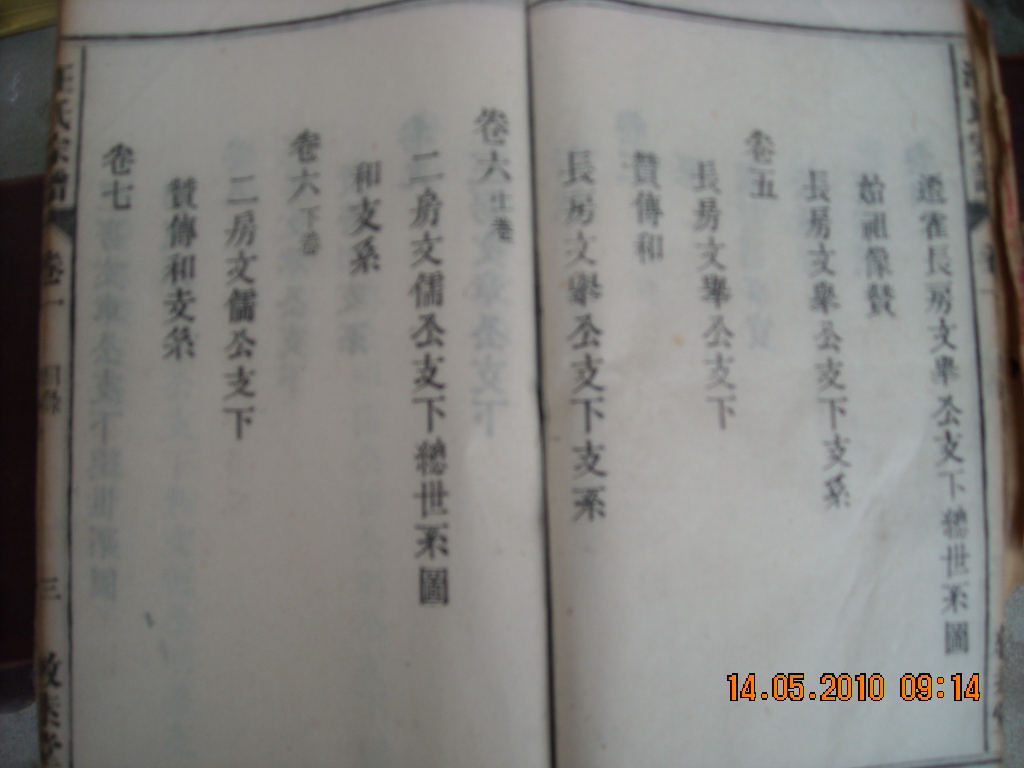 遷雀長房文舉公支下總世系圖
始祖像贊
長房文舉公支下支系
卷五
長房文舉公支下
贊傳和
長房文舉公支下支系
卷六上卷
二房文儒公支下總世系圖
和支系
卷六下卷
二房文儒公支下
贊傳和支系
卷七
汪氏宗譜
卷一
目錄
三
敦素堂
14.05.2010 09:14